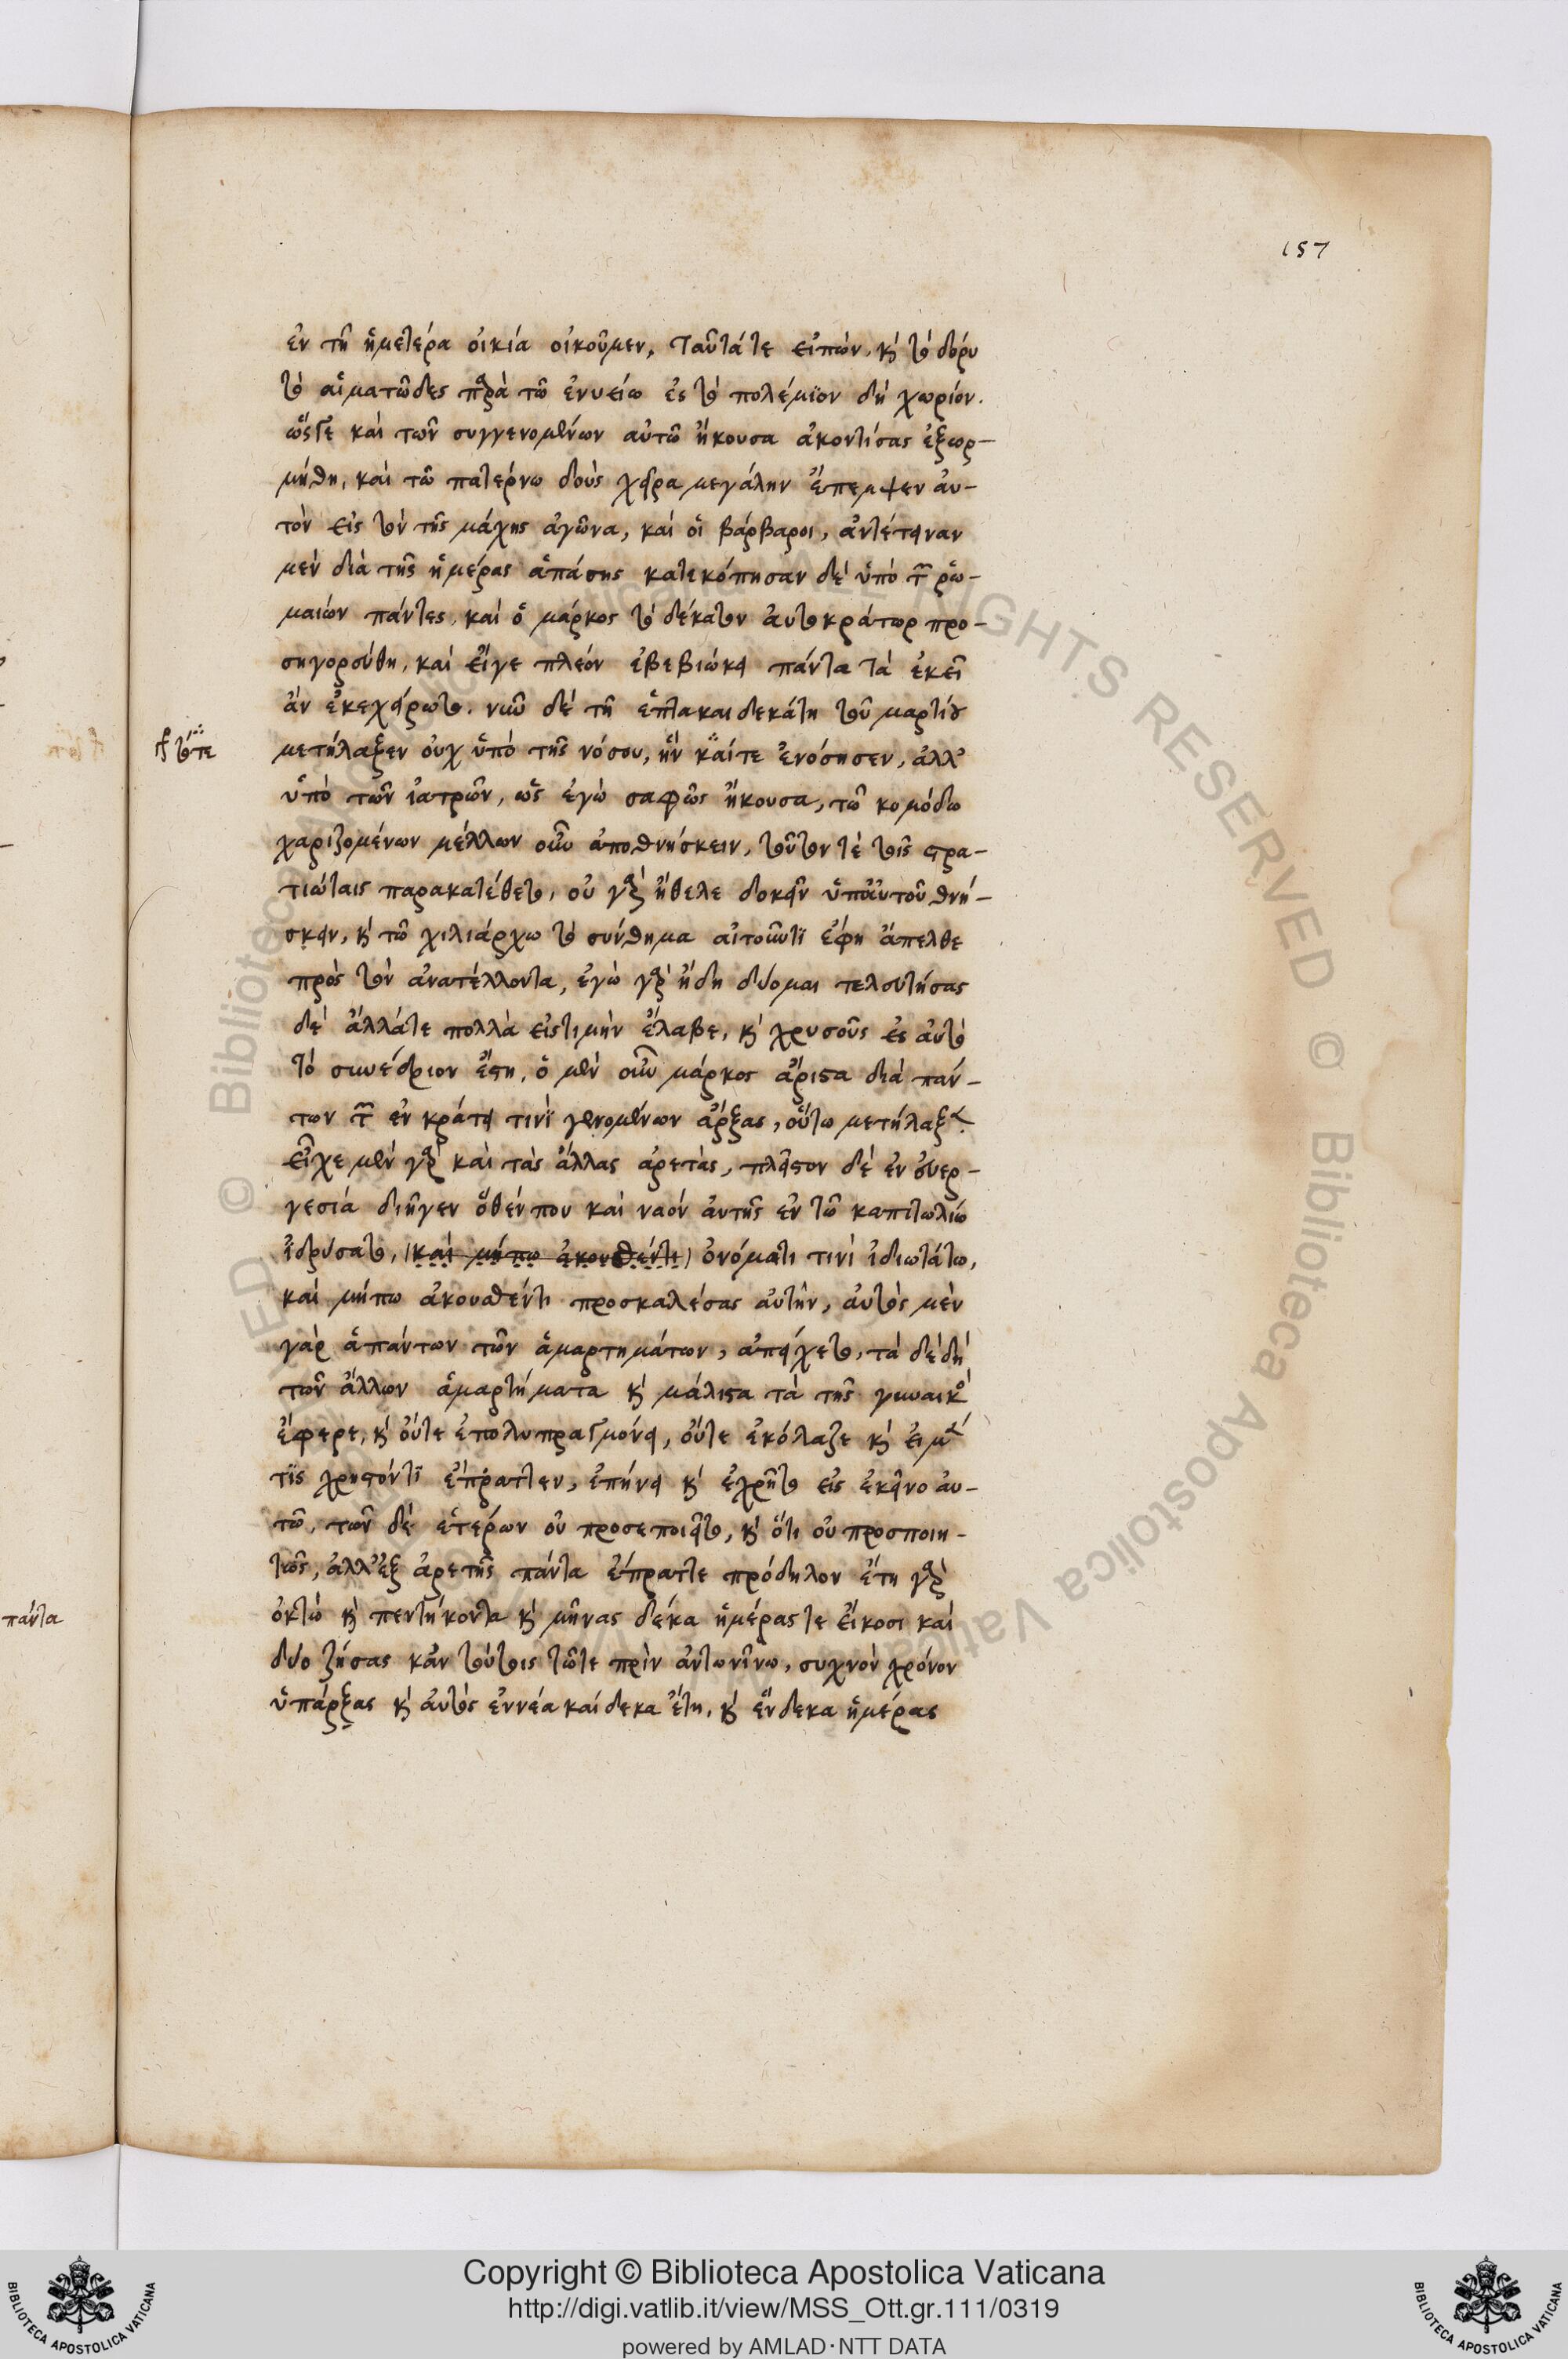 157
ἐν τῆ ἡμετέρα οἰκία οἰκοῦμεν, ταῦτά τε εἰπών, κ̀ τὸ δόρυ
τὸ αἱματῶδες παρὰ τῶ ἐνυείω ἐς τὸ πολέμϊον δὴ χωρίον.
ὥςγε καὶ τῶν συγγενομένων αὐτῶ ἤκουσα ἀκοντίσας ἐξωρ-
μήθη, καὶ τῶ πατέρνω δοὺς χεῖρα μεγάλην ἔπεμψεν αυ-
τὸν εἰς τὸν τῆς μάχης ἀγῶνα, καὶ οἱ βάρβαροι, ἀντέτειναν
μεν διὰ τῆς ἡμέρας ἁπάσης κατεκόπησαν δὲ ὑπὸ τ ῥω-
μαιών πάντες, καὶ ὁ μάρκος τὸ δέκατον ἀυτοκράτωρ προ-
σηγορεύθη, καὶ εἴγε πλεόν ἐβεβιώκει πάντα τὰ ἐκεῖ
ἀν ἐκεχείρωτο. νῦν δὲ τῆ ἑπτακαιδεκάτη τοῦ μαρτίου
τότε
μετήλαξεν οὐχ ὑπὸ τῆς νόσου, ἣν καίτε ἐνόσησεν, ἀλλ'
ὑπὸ τῶν ἰατρῶν, ὡς ἐγὼ σαφῶς ἤκουσα, τῶ κομόδω
χαριζομένων μέλλων οὖν ἀποθνήσκειν, τοῦτον τὲ τοῖς στρα-
τιώταις παρακατέθετο, οὐ γὰρ ἤθελε δοκεῖν ὑπ' ἀυτοῦ θνή-
σκειν, κ̀ τῶ χιλιάρχω τὸ σύνθημα αἰτοῦντϊ ἐφη ἄπελθε
πρὸς τὸν ἀνατέλλοντα, ἐγὼ γὰρ ἤδη δύομαι τελευτήσας
δὲ ἄλλάτε πολλὰ εἰςτιμὴν ἔλαβε, κ̀ χρυσοῦς ἐς ἀυτὸ
τὸ συνέδριον ἔστη, ὁ μὲν οὖν μάρκος ἄριστα διὰ πάν-
των τ ἐν κράτει τινὶ γενομένων ἄρξας, οὕτω μετήλαξε.
εἶχε μὲν γὰρ καὶ τὰς ἄλλας ἀρετὰς, πλεῖστον δὲ ἐν ἐυερ-
γεσία διῆγεν ὅθέν που καὶ ναὸν ἀυτῆς ἐν τῶ καπιτωλίω
ἱδρύσατο, (καὶ μήπω ἀκουσθέντι) ὀνόματι τινὶ ἰδιωτάτω,
καὶ μήπω ἀκουσθέντι προσκαλέσας ἀυτὴν, ἀυτὸς μὲν
γὰρ ἁπάντων τῶν ἁμαρτημάτων, ἀπείχετο, τὰ δὲ δὴ
τῶν ἄλλων ἁμαρτήματα κ̀ μάλιστα τὰ τῆς γυναικὸ
ἔφερε, κ̀ ὄυτε ἐπολυπραγμόνει, ὄυτε ἐκόλαζε κ̀ εἰ μὲ
τῒς χρηστόντϊ ἔπραττεν, ἐπήνει κ̀ ἐχρῆτο εἰς ἐκεῖνο ἀυ-
τῶ, τῶν δὲ ἑτέρων οὐ προσεποιεῖτο, κ̀ ὅτι οὐ προσποιη-
τῶς, ἀλλ' ἐξ ἀρετῆς πάντα ἔπραττε πρόδηλον ἔτη γὰρ
ὀκτὼ κ̀ πεντήκοντα κ̀ μῆνας δέκα ἡμέρας τε εἴκοσι καὶ
δύο ζήσας κἀν τούτοις τῶτε πρὶν ἀντωνίνω, συχνὸν χρόνον
ὑπάρξας κ̀ ἀυτὸς ἐννέα καίδεκα ἔτη, κ̀ ἕνδεκα ἡμέρας
πάντα
Copyright © Biblioteca Apostolica Vaticana
http://digi.vatlib.it/view/MSS_Ott.gr.111/0319
powered by AMLAD·NTT DATA